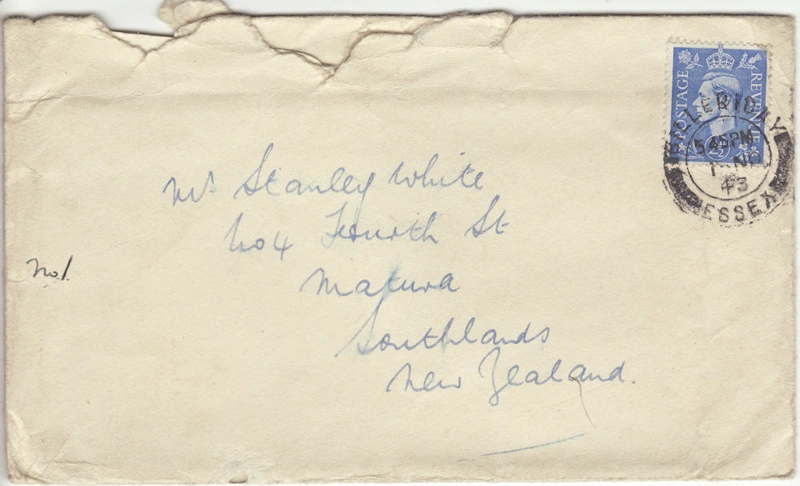 POSTAGE REVENUE
2½
BILLERICAY
5 45PM
43
ESSEX
Mr Stanley White
No 4 Fourth St
Mataura
Southlands
New Zealand.
No 1.